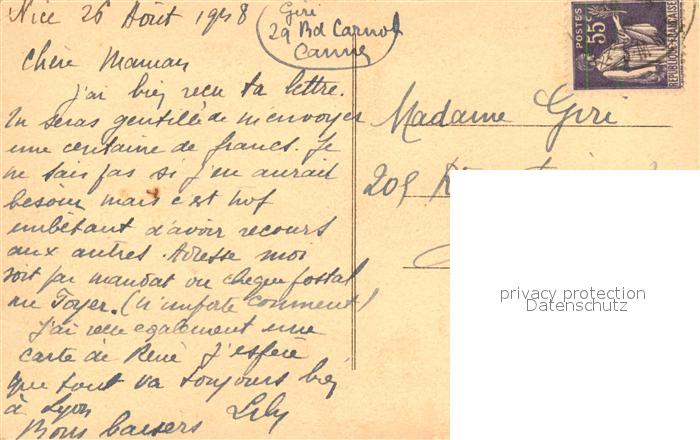 Nice 26 Août 1938
Giré
29 Bd Carnot
Cannes
Chère Maman
j'ai bien reçu ta lettre.
Tu seras gentille de m'envoyer
une centaine de francs. Je
ne sais pas si j'en aurait
besoin mais c'est trop
embêtant d'avoir recours
aux autres. Adresse moi
soit par mandat ou cheque postal
au Foyer. (n'importe comment)
J'ai reçu egalement une
carte de René j'espère
que tout va toujours bien
à Lyon
Bons baisers Lily
POSTES
55c
REPUBLIQUE FRANÇAISE
Madame Giré
209
privacy protection
Datenschutz